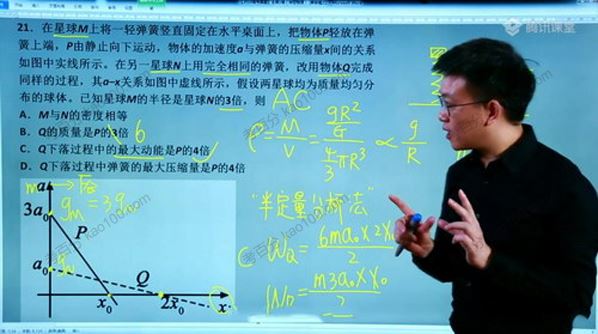 腾讯课堂
21. 在星球M上将一轻弹簧竖直固定在水平桌面上，把物体P轻放在弹
簧上端，P由静止向下运动，物体的加速度a与弹簧的压缩量x间的关系
如图中实线所示。在另一星球N上用完全相同的弹簧，改用物体Q完成
同样的过程，其a–x关系如图中虚线所示，假设两星球均为质量均匀分
布的球体。已知星球M的半径是星球N的3倍，则
AC
A. M与N的密度相等
B. Q的质量是P的3倍 6
C. Q下落过程中的最大动能是P的4倍
D. Q下落过程中弹簧的最大压缩量是P的4倍
ρ = M/V = (gR²/G)/(4/3 πR³) ∝ g/R
"半定量分析法"
C W_Q = 6ma₀×2x₀/2
m3a₀×x₀/2
a
g_M = 3g_N
3a₀
P
a₀
g_N
Q
x₀
2x₀
x
考百分 kao100.com
考百分 kao100.com
考百分 kao100.com